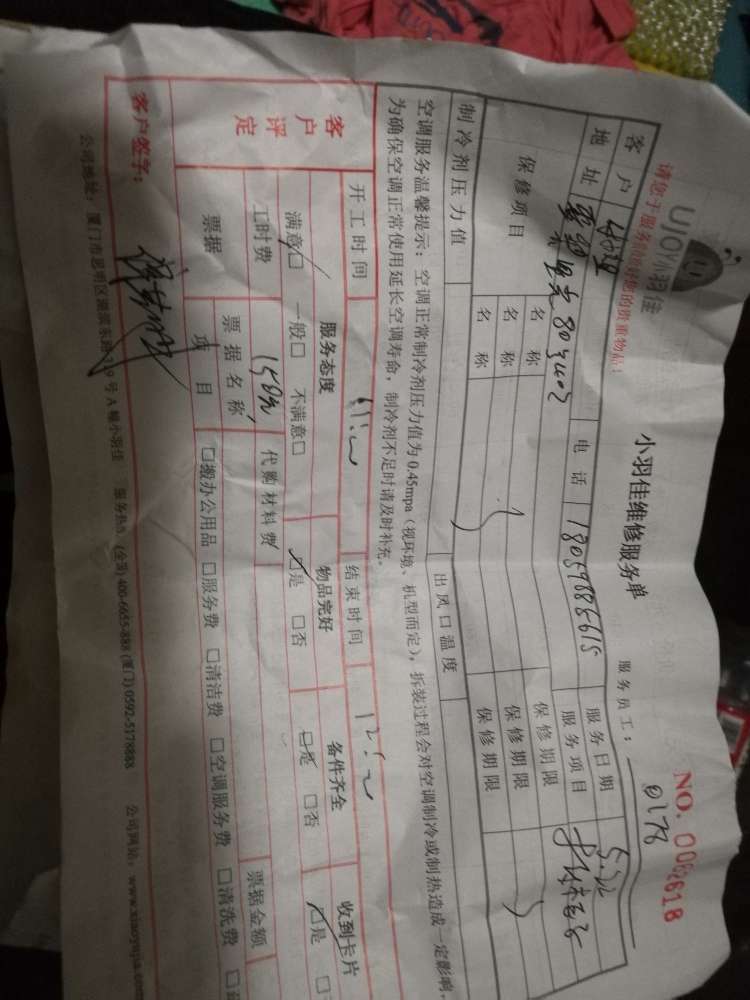 请您于服务前收好您的贵重物品!
UJOY小羽佳
小羽佳维修服务单
NO. 0062618
服务员工: 0178
客户
电话 18059886615
服务日期
地址
服务项目
保修项目 名称 保修期限
名称 保修期限
名称 保修期限
制冷剂压力值 出风口温度
空调服务温馨提示:空调正常制冷剂压力值为0.45mpa(视环境、机型而定),拆装过程会对空调制冷或制热造成一定影响,
为确保空调正常使用延长空调寿命,制冷剂不足时请及时补充。
开工时间 11:00 结束时间 12:00
客户评定
服务态度 物品完好 备件齐全 收到卡片
满意□ 一般□ 不满意□ □是 □否 □是 □否 □是
工时费 150元 代购材料费
票据 票据名称 票据金额
项目 □搬办公用品 □服务费 □清洁费 □空调服务费 □清洗费
客户签字:
公司地址:厦门市思明区湖滨东路319号A幢小羽佳 服务热线:(全国)400-6655-888 (厦门)0592-5178888 公司网站:www.xiaoyujia.com